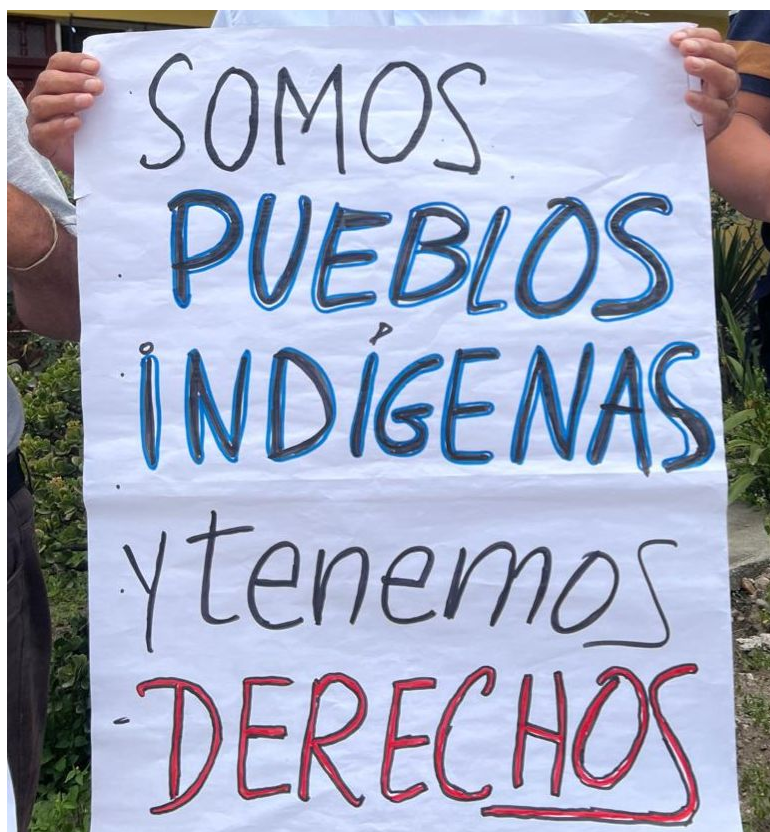 SOMOS
PUEBLOS
INDÍGENAS
y tenemos
DERECHOS